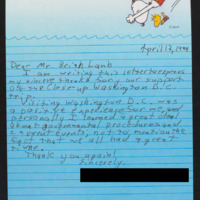 April 13, 1998
Dear Mr. Brian Lamb
I am writing this letter to express
my sincere thanks for your support
of the Close-up Washington D.C.
trip.
Visiting Washington D.C. was
a positive experience for me, and
personally I learned a great deal
about governmental procedures and
current events, not to mention the
fact that we all had a great
time.
Thank you again!
Sincerely,